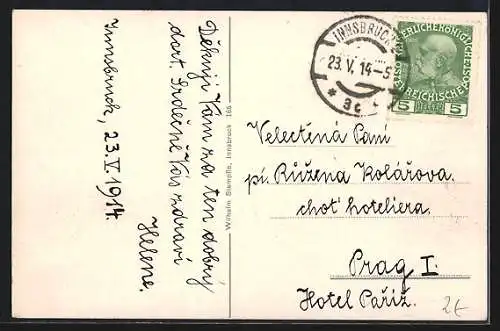 Innsbruck, 23.V.1914.
Děkuji Vám za ten dobrý
dort. Srdečně Vás zdraví
Helena.
Wilhelm Stempfle, Innsbruck 166
INNSBRUCK
23.V.14-5
* 3c *
KAISERLICHEKÖNIGLICHE
REICHISCHE
5 5
Velectěná Paní
pí. Růžena Kolářova.
choť hoteliera.
Prag I.
Hotel Paříž.
2€